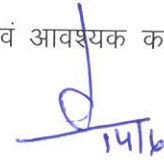 वं आवश्यक क
14/6